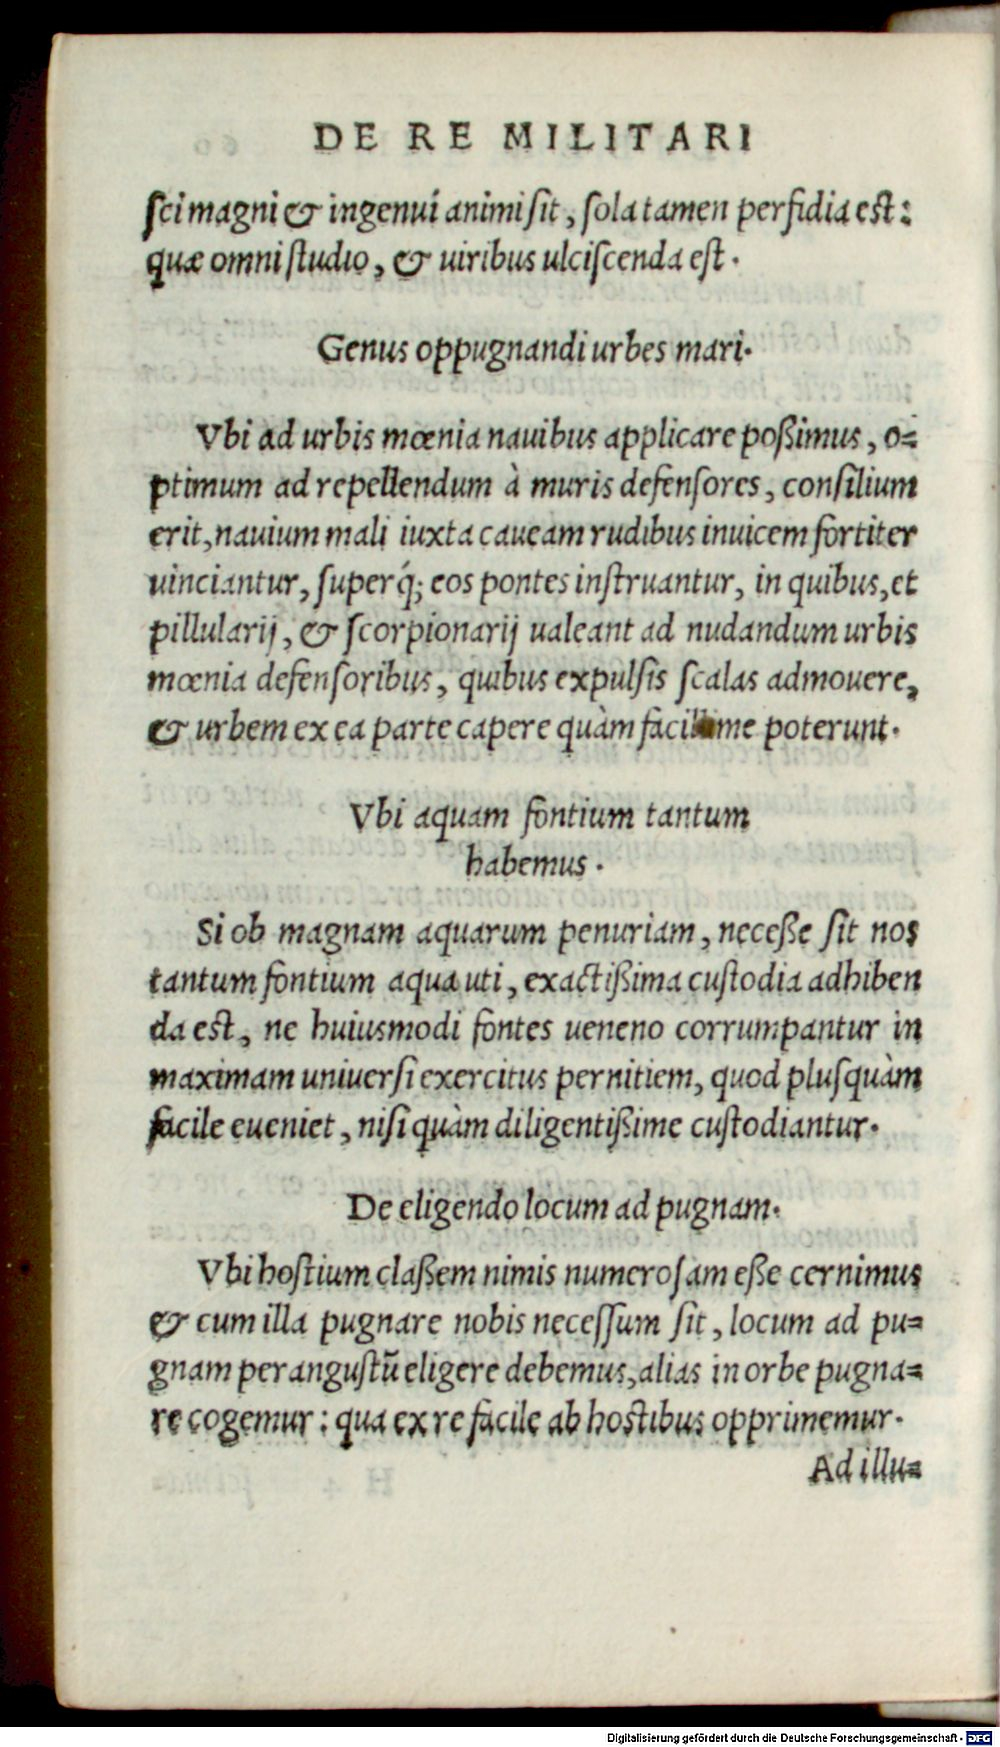 DE RE MILITARI
sci magni & ingenui animi sit, sola tamen perfidia est:
quæ omni studio, & uiribus ulciscenda est.
Genus oppugnandi urbes mari.
Vbi ad urbis mœnia nauibus applicare poßimus, o=
ptimum ad repellendum à muris defensores, consilium
erit, nauium mali iuxta caueam rudibus inuicem fortiter
uinciantur, superq́; eos pontes instruantur, in quibus, et
pillularij, & scorpionarij ualeant ad nudandum urbis
mœnia defensoribus, quibus expulsis scalas admouere,
& urbem ex ea parte capere quàm facillime poterunt.
Vbi aquam fontium tantum
habemus.
Si ob magnam aquarum penuriam, neceße sit nos
tantum fontium aqua uti, exactißima custodia adhiben
da est, ne huiusmodi fontes ueneno corrumpantur in
maximam uniuersi exercitus pernitiem, quod plusquàm
facile eueniet, nisi quàm diligentißime custodiantur.
De eligendo locum ad pugnam.
Vbi hostium claßem nimis numerosam eße cernimus
& cum illa pugnare nobis necessum sit, locum ad pu=
gnam perangustũ eligere debemus, alias in orbe pugna=
re cogemur: qua ex re facile ab hostibus opprimemur.
Ad illu=
Digitalisierung gefördert durch die Deutsche Forschungsgemeinschaft - DFG